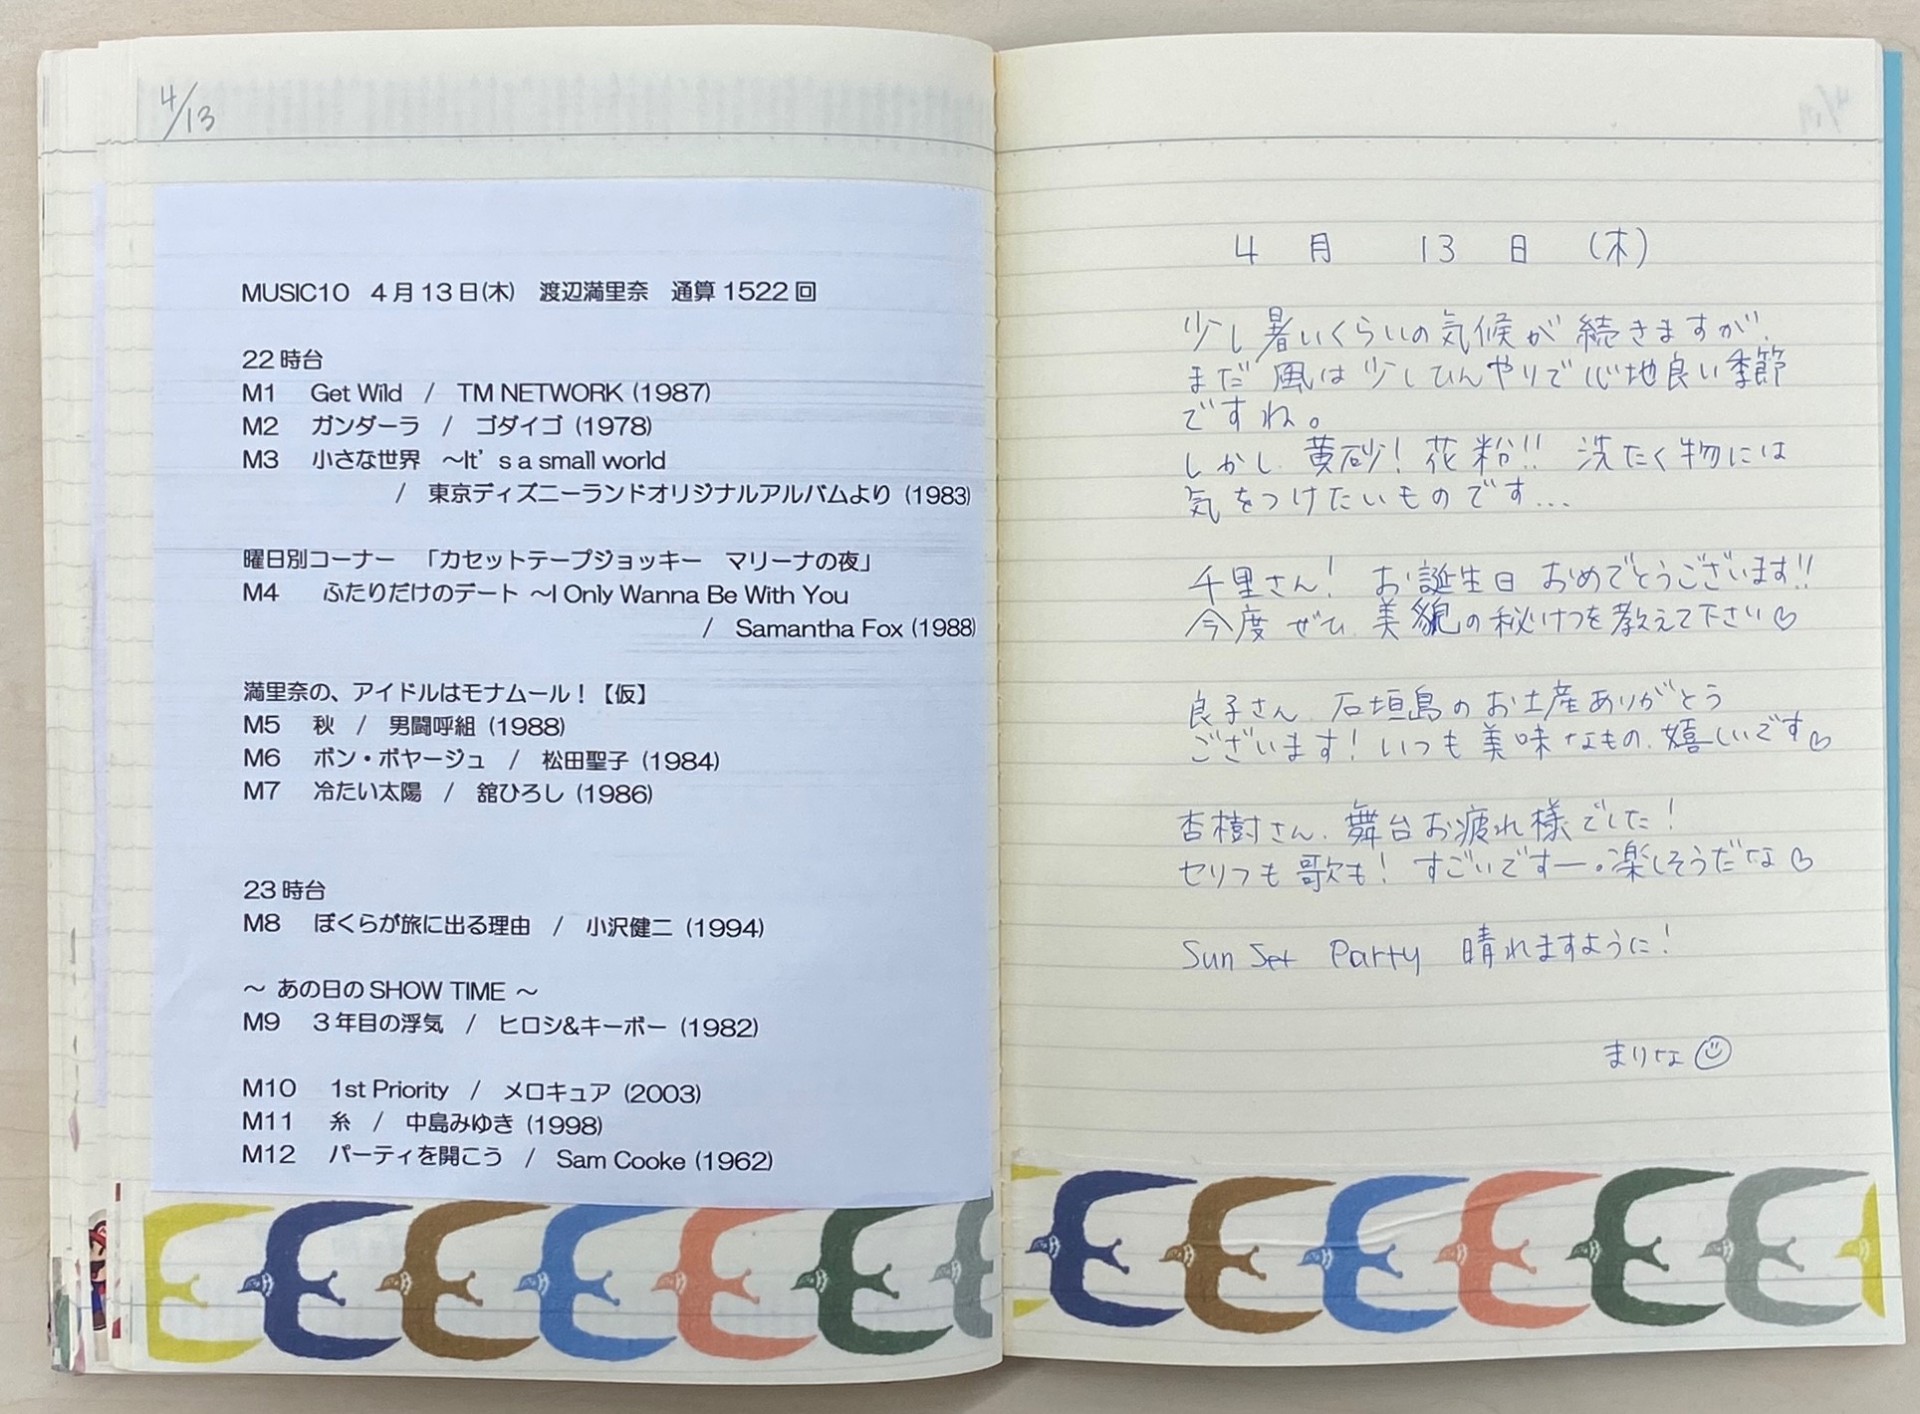 4/13
MUSIC10 4月13日(木) 渡辺満里奈 通算1522回
22時台
M1 Get Wild / TM NETWORK (1987)
M2 ガンダーラ / ゴダイゴ (1978)
M3 小さな世界 ～It's a small world
/ 東京ディズニーランドオリジナルアルバムより (1983)
曜日別コーナー 「カセットテープジョッキー マリーナの夜」
M4 ふたりだけのデート ～I Only Wanna Be With You
/ Samantha Fox (1988)
満里奈の、アイドルはモナムール！【仮】
M5 秋 / 男闘呼組 (1988)
M6 ボン・ボヤージュ / 松田聖子 (1984)
M7 冷たい太陽 / 舘ひろし (1986)
23時台
M8 ぼくらが旅に出る理由 / 小沢健二 (1994)
～ あの日のSHOW TIME ～
M9 3年目の浮気 / ヒロシ&キーボー (1982)
M10 1st Priority / メロキュア (2003)
M11 糸 / 中島みゆき (1998)
M12 パーティを開こう / Sam Cooke (1962)
4月 13日 (木)
少し暑いくらいの気候が続きますが、
まだ風は少しひんやりで心地良い季節
ですね。
しかし、黄砂！花粉!! 洗たく物には
気をつけたいものです...
千里さん！ お誕生日おめでとうございます!!
今度ぜひ、美貌の秘けつを教えて下さい♡
良子さん、石垣島のお土産ありがとう
ございます！いつも美味なもの、嬉しいです♡
杏樹さん、舞台お疲れ様でした！
セリフも歌も！すごいですー。楽しそうだな♡
Sun Set Party 晴れますように！
まりな☺